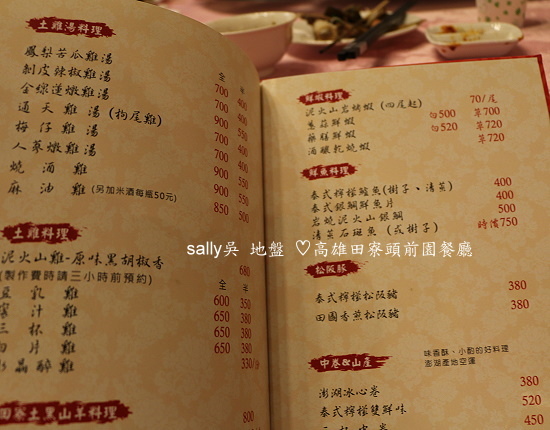 土雞湯料理
全 半
鳳梨苦瓜雞湯 700 400
剝皮辣椒雞湯 700 400
金線蓮燉雞湯 900
通天雞湯(枸尾雞) 900 500
梅仔雞湯 700 400
人蔘燉雞湯 900 500
燒酒雞 900 550
麻油雞(另加米酒每瓶50元) 850 500
土雞料理
泥火山雞-原味黑胡椒香 680
(製作費時請三小時前預約) 全 半
豆乳雞 600 350
蜜汁雞 650 380
三杯雞 650 380
白片雞 650 380
水晶醉雞 330/
田寮土黑山羊料理
800
鮮蝦料理
泥火山岩烤蝦(四尾起) 70/尾
蔥蒜鮮蝦 旬500 草700
藥膳鮮蝦 旬520 草720
酒釀乾燒蝦 草720
鮮魚料理
泰式檸檬鱸魚(樹子、清蒸) 400
泰式銀鯛鮮魚片 400
岩燒泥火山銀鯛 500
清蒸石斑魚(或樹子) 時價750
sally吳 地盤 ♡高雄田寮頭前園餐廳
松阪豚
泰式檸檬松阪豬 380
田園香煎松阪豬 380
中卷&山産
味香酥、小酌的好料理
澎湖產地空運
澎湖冰心卷 380
泰式檸檬雙鮮味 520
三杯中卷 450